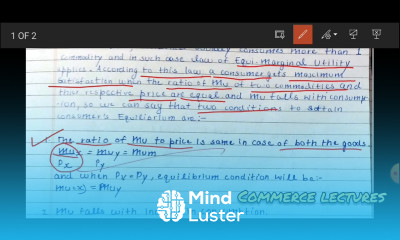 1 OF 2
consumes more than 1
commodity and in such case law of Equi-Marginal Utility
applies. According to this law a consumer gets maximum
satisfaction when the ratio of MU of two commodities and
their respective price are equal and MU falls with consump-
tion, so we can say that two conditions to attain
consumer's Equilibrium are:-
The ratio of MU to price is same in case of both the goods.
MUx = MUy = MUm
Px Py
and when Px = Py, equilibrium condition will be:-
MUx = MUy
MU falls with
Mind
Luster
COMMERCE LECTURES